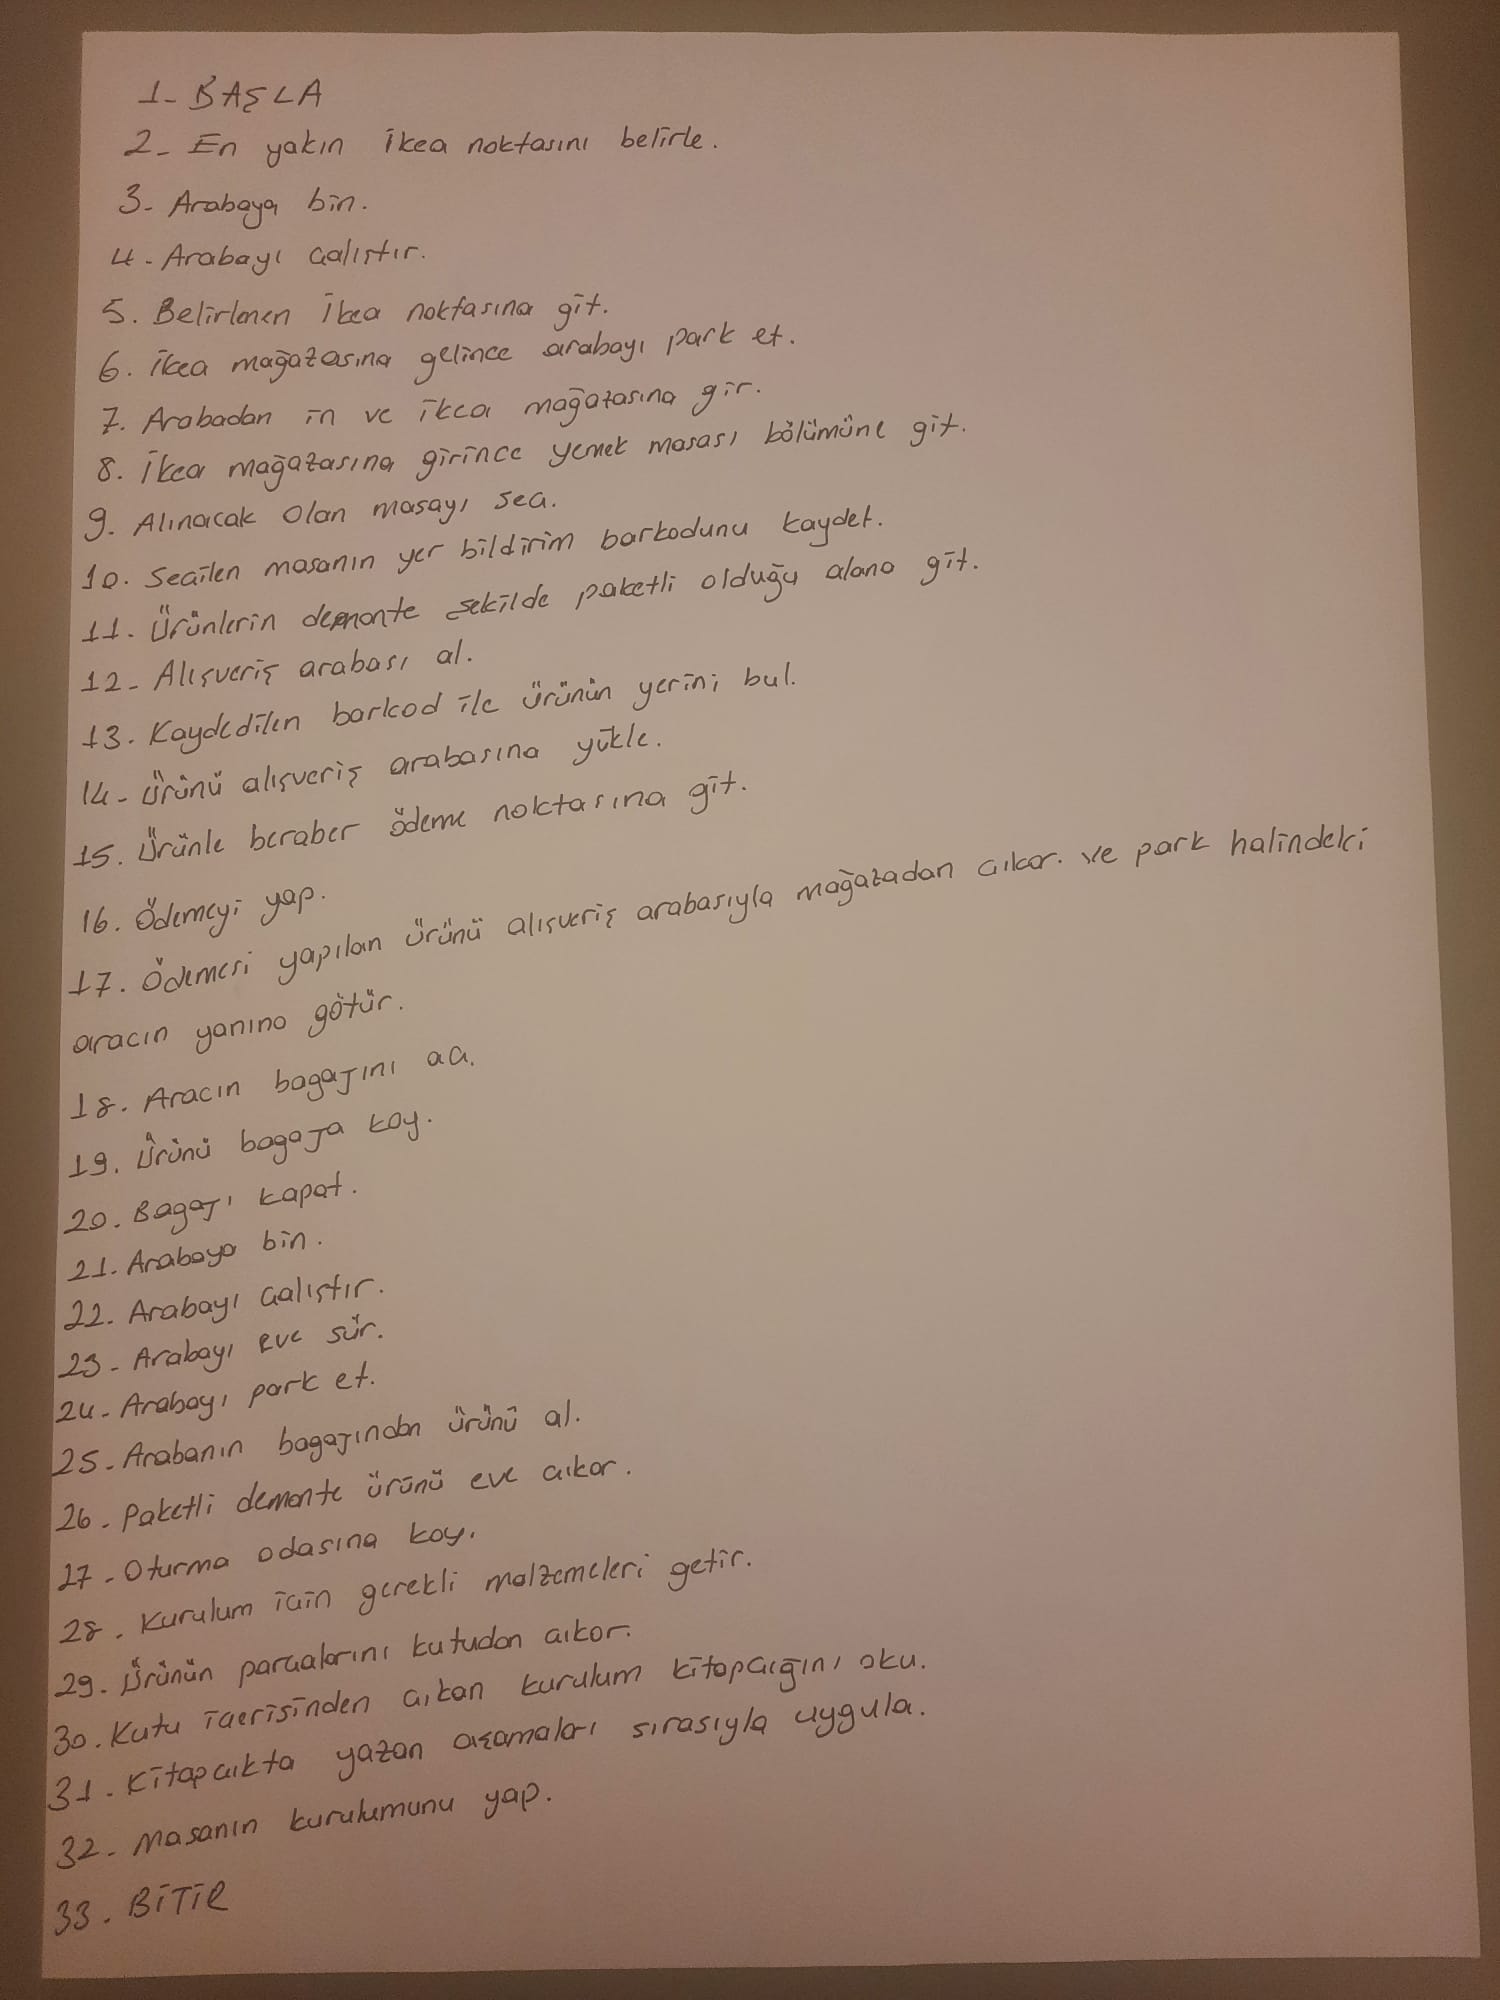 1- BAŞLA
2- En yakın ikea noktasını belirle.
3- Arabaya bin.
4- Arabayı çalıştır.
5. Belirlenen ikea noktasına git.
6. ikea mağazasına gelince arabayı park et.
7. Arabadan in ve ikea mağazasına gir.
8. ikea mağazasına girince yemek masası bölümüne git.
9. Alınacak olan masayı seç.
10. Seçilen masanın yer bildirim barkodunu kaydet.
11. Ürünlerin demonte şekilde paketli olduğu alana git.
12- Alışveriş arabası al.
13. Kaydedilen barkod ile ürünün yerini bul.
14- Ürünü alışveriş arabasına yükle.
15. Ürünle beraber ödeme noktasına git.
16. Ödemeyi yap.
17. Ödemesi yapılan ürünü alışveriş arabasıyla mağazadan çıkar. ve park halindeki
aracın yanına götür.
18. Aracın bagajını aç.
19. Ürünü bagaja koy.
20. Bagajı kapat.
21. Arabaya bin.
22. Arabayı çalıştır.
23- Arabayı eve sür.
24- Arabayı park et.
25- Arabanın bagajından ürünü al.
26- Paketli demonte ürünü eve çıkar.
27- Oturma odasına koy.
28. Kurulum için gerekli malzemeleri getir.
29. Ürünün parçalarını kutudan çıkar.
30. Kutu içerisinden çıkan kurulum kitapçığını oku.
31. Kitapçıkta yazan aşamaları sırasıyla uygula.
32- Masanın kurulumunu yap.
33. BİTİR